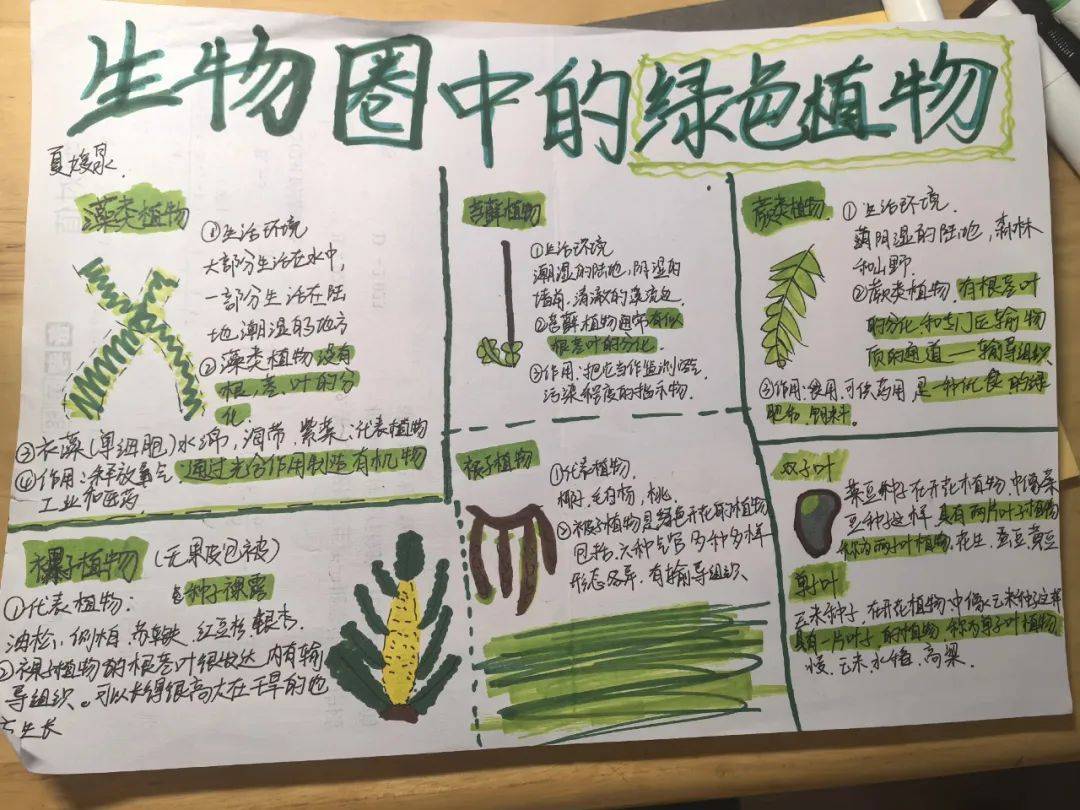 生物圈中的绿色植物
藻类植物
①生活环境
大部分生活在水中，
一部分生活在陆
地潮湿的地方
②藻类植物没有
根，茎，叶的分
化
③衣藻(单细胞)水绵，海带，紫菜：代表植物
④作用：释放氧气，通过光合作用制造有机物
工业和医药
苔藓植物
①生活环境
潮湿的陆地，阴湿的
墙角，清澈的溪流边
②苔藓植物通常有似
根茎叶的分化
③作用：把它当作监测空气
污染程度的指示物.
蕨类植物
①生活环境.
阴湿的陆地，森林
和山野.
②蕨类植物，有根茎叶
的分化，和专门运输物
质的通道——输导组织
③作用：食用，可供药用，是一种优良的绿
肥和，饲料.
裸子植物(无果皮包被)
种子裸露
①代表植物：
油松，侧柏，苏铁，红豆杉，银杏.
②裸子植物的根茎叶很发达，内有输
导组织。可以长得很高大在干旱的地
方生长
被子植物
①代表植物.
椰子，毛白杨，桃.
②被子植物是绿色开花的植物
包括六种器官多种多样
形态各异，有输导组织.
双子叶
菜豆种子在开花植物，中像菜
豆种子这样，具有两片叶子植物
称为两子叶植物，花生，蚕豆黄豆
单子叶
玉米种子，在开花植物中像玉米种子这样
具有一片叶子，的植物，称为单子叶植物，
玉米，水稻，高粱.